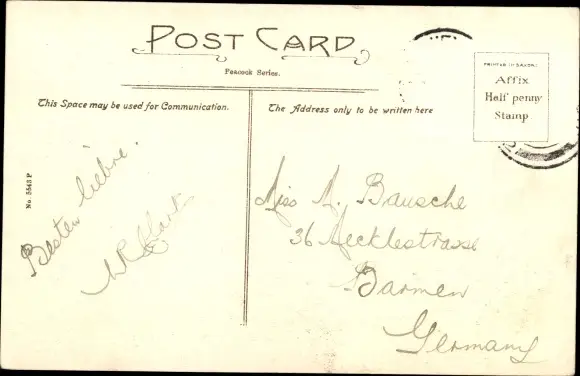 POST CARD
Peacock Series.
This Space may be used for Communication.
The Address only to be written here
PRINTED IN SAXONY
Affix
Half penny
Stamp
No. 5543 P
Besten
Miss A. Bausche
36 Aecklestrasse
Barmen
Germany